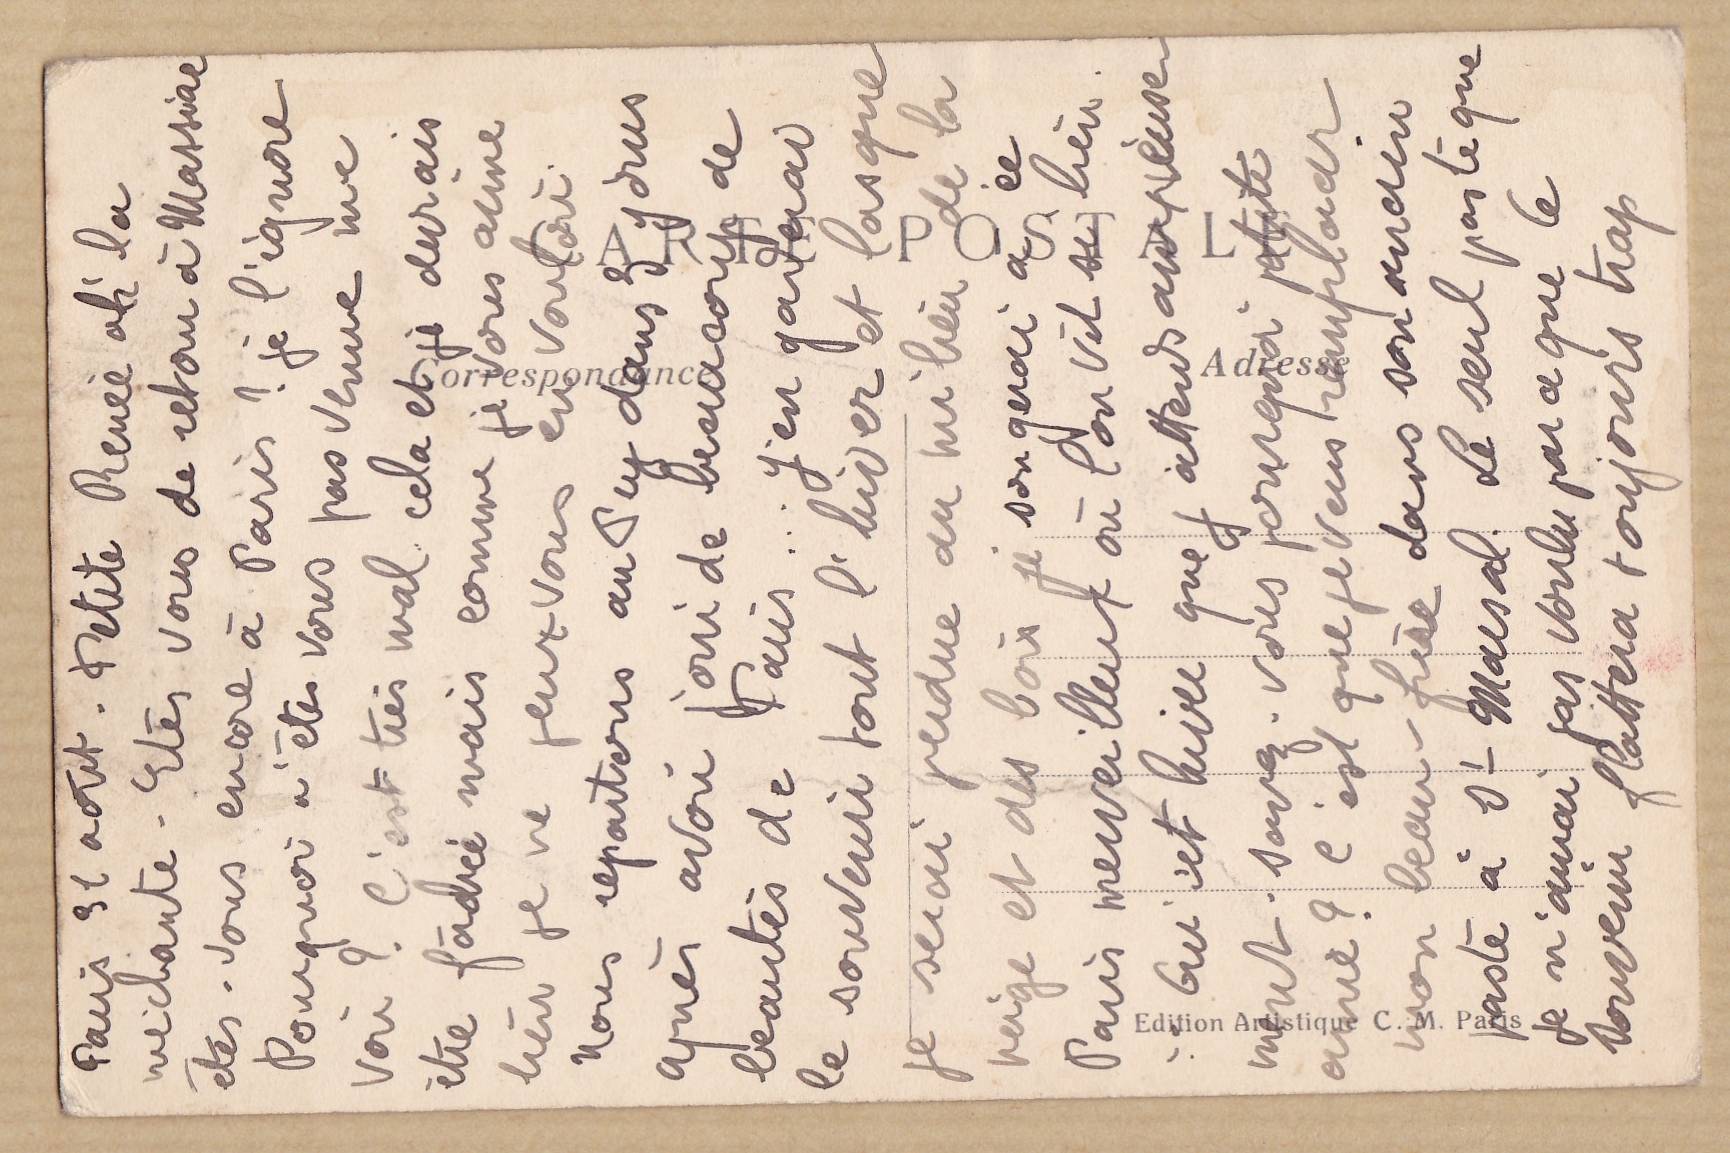 Paris 31 août. Petite Renée oh! la
méchante. Etes vous de retour à Massiac
êtes-vous encore à Paris ? je l'ignore
Pourquoi n'êtes vous pas venue me
voir ? C'est très mal cela et je devrais
être fâchée mais comme je vous aime
bien je ne peux vous en vouloir.
Nous repartons au Puy dans 3 jours
après avoir joui de beaucoup de
beautés de Paris... j'en garderai
le souvenir tout l'hiver et lorsque
je serai perdue au milieu de la
neige et des bois je songerai à ce
Paris merveilleux où l'on vit si bien.
Oui et hiver que j'attends anxieuse
ment. savez-vous pourquoi petite
amie ? c'est que je veux remplacer
mon beau-frère dans son ancien
poste à St Marsal. Le seul poste que
je n'aurai pas voulu parce que le
souvenir flottera toujours trop
CARTE POSTALE
Correspondance
Adresse
Edition Artistique C. M. Paris